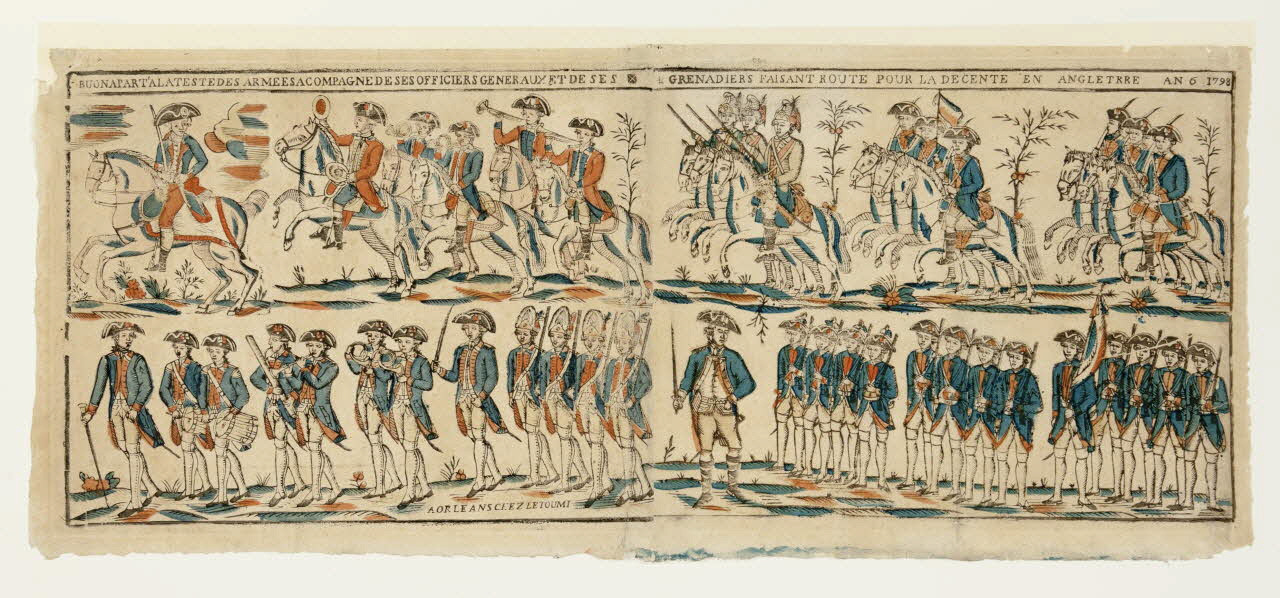 BUONAPART'A LA TESTE DES ARMEES ACOMPAGNE DE SES OFFICIERS GENERAUX ET DE SES GRENADIERS FAISANT ROUTE POUR LA DECENTE EN ANGLETRRE AN 6 1798
A ORLEANS CHEZ LETOUMI